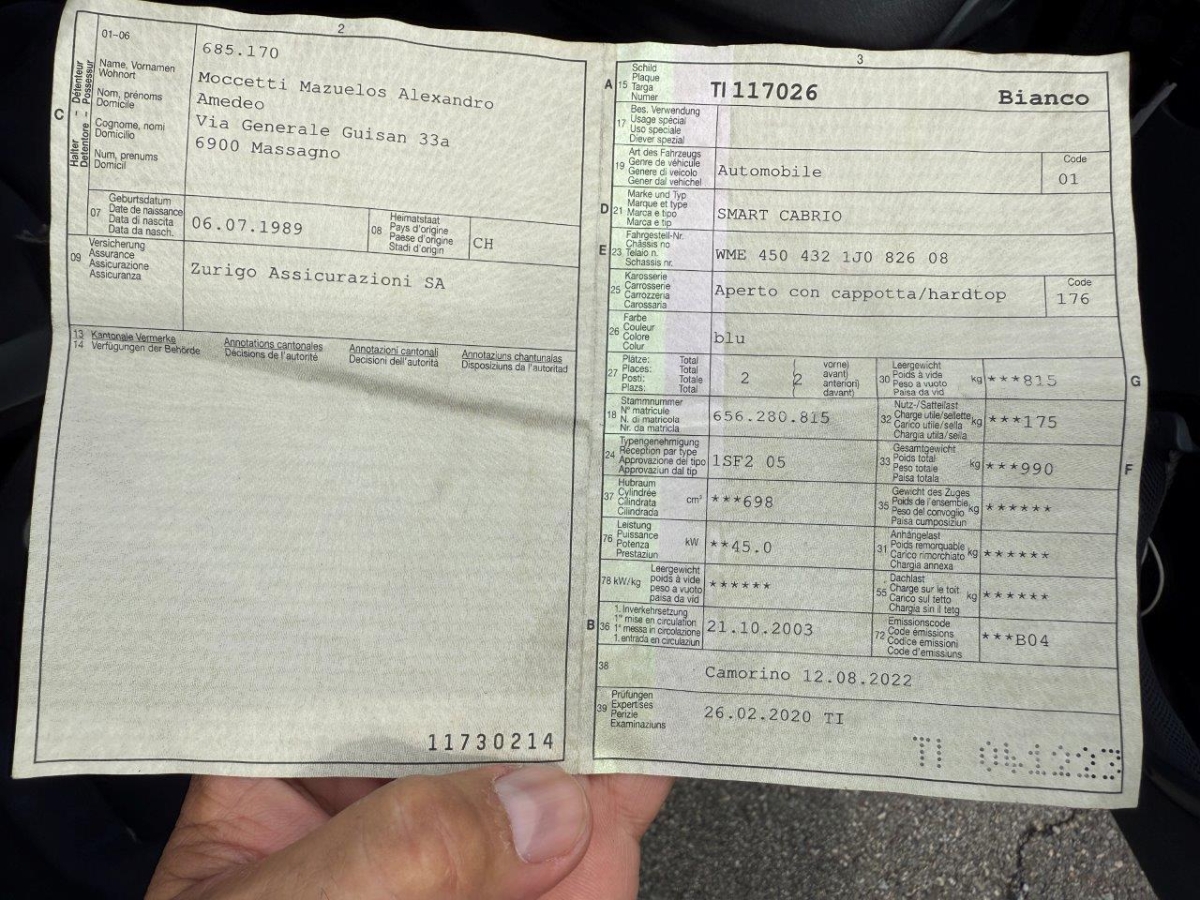 2
01-06
685.170
C
Halter - Détenteur
Detentore - Possessur
Name, Vornamen
Wohnort
Nom, prénoms
Domicile
Cognome, nomi
Domicilio
Num, prenums
Domicil
Moccetti Mazuelos Alexandro
Amedeo
Via Generale Guisan 33a
6900 Massagno
07
Geburtsdatum
Date de naissance
Data di nascita
Data da nasch.
06.07.1989
08
Heimatstaat
Pays d'origine
Paese d'origine
Stadi d'origin
CH
09
Versicherung
Assurance
Assicurazione
Assicuranza
Zurigo Assicurazioni SA
13 Kantonale Vermerke
14 Verfügungen der Behörde
Annotations cantonales
Décisions de l'autorité
Annotazioni cantonali
Decisioni dell'autorità
Annotaziuns chantunalas
Disposiziuns da l'autoritad
11730214
3
A 15
Schild
Plaque
Targa
Numer
TI 117026 Bianco
17
Bes. Verwendung
Usage spécial
Uso speciale
Diever spezial
19
Art des Fahrzeugs
Genre de véhicule
Genere di veicolo
Gener dal vehichel
Automobile
Code
01
D 21
Marke und Typ
Marque et type
Marca e tipo
Marca e tip
SMART CABRIO
E 23
Fahrgestell-Nr.
Châssis no
Telaio n.
Schassis nr.
WME 450 432 1J0 826 08
25
Karosserie
Carrosserie
Carrozzeria
Carossaria
Aperto con cappotta/hardtop
Code
176
26
Farbe
Couleur
Colore
Colur
blu
27
Plätze: Total
Places: Total
Posti: Totale
Plazs: Total
2 (2
vorne)
avant)
anteriori)
davant)
30
Leergewicht
Poids à vide
Peso a vuoto
Paisa da vid
kg ***815
G
18
Stammnummer
N° matricule
N. di matricola
Nr. da matricla
656.280.815
32
Nutz-/Sattellast
Charge utile/sellette
Carico utile/sella
Chargia utila/sella
kg ***175
24
Typengenehmigung
Réception par type
Approvazione del tipo
Approvaziun dal tip
1SF2 05
33
Gesamtgewicht
Poids total
Peso totale
Paisa totala
kg ***990
F
37
Hubraum
Cylindrée
Cilindrata
Cilindrada
cm³ ***698
35
Gewicht des Zuges
Poids de l'ensemble
Peso del convoglio
Paisa cumposiziun
kg ******
76
Leistung
Puissance
Potenza
Prestaziun
kW **45.0
31
Anhängelast
Poids remorquable
Carico rimorchiato
Chargia annexa
kg ******
78 kW/kg
Leergewicht
poids à vide
peso a vuoto
paisa da vid
******
55
Dachlast
Charge sur le toit
Carico sul tetto
Chargia sin il tetg
kg ******
B 36
1. Inverkehrsetzung
1re mise en circulation
1a messa in circolazione
1. entrada en circulaziun
21.10.2003
72
Emissionscode
Code émissions
Codice emissioni
Code d'emissiuns
***B04
38
Camorino 12.08.2022
39
Prüfungen
Expertises
Perizie
Examinaziuns
26.02.2020 TI
TI 041223